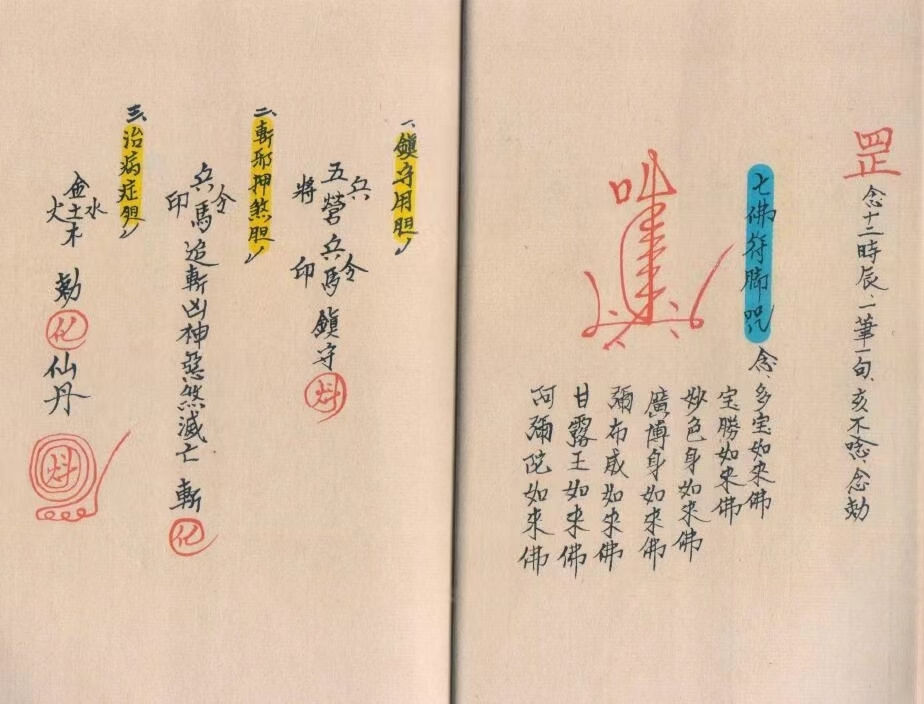 罡 念十二時辰、一筆一句、亥不唸、念勅
七佛符腳咒 念、多宝如來佛
宝勝如來佛
妙色身如來佛
廣博身如來佛
彌布威如來佛
甘露王如來佛
阿彌陀如來佛
一、鎮守用胆
五營兵將 兵馬令印 鎮守
二、斬邪押煞胆
兵馬令印追斬凶神惡煞滅亡 斬 化
三、治病症胆
金水木火土 勅 化 仙丹